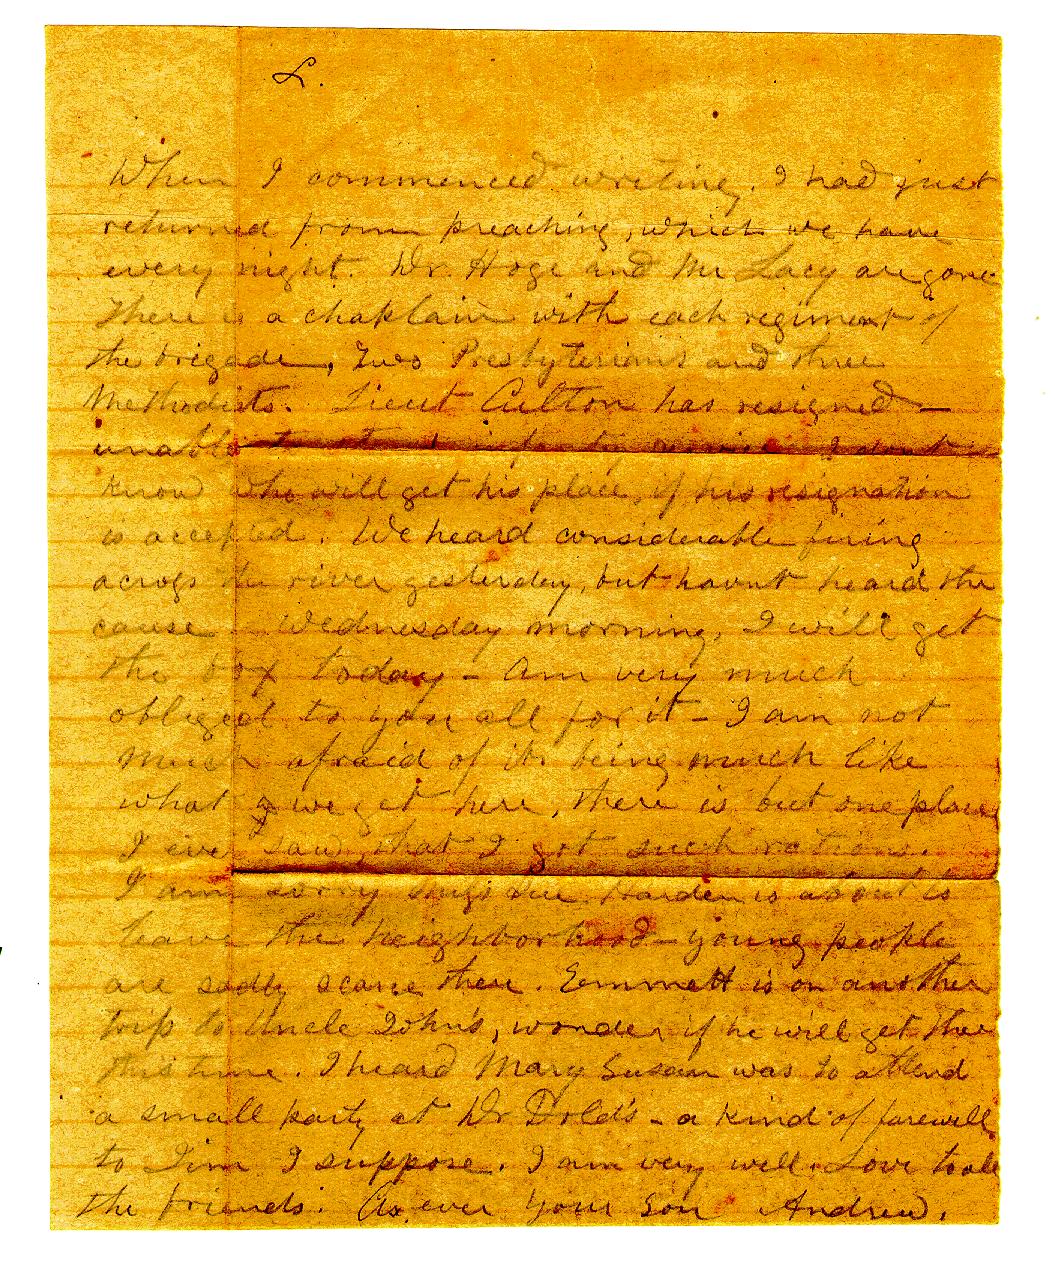 L.
When I commenced writing, I had just
returned from preaching, which we have
every night. Dr. Hoge and Mr Lacy are gone
There is a chaplain with each regiment of
the brigade, Two Presbyterians and three
Methodists. Lieut Culton has resigned —
unable to I dont
know who will get his place, if his resignation
is accepted. We heard considerable firing
across the river yesterday, but havnt heard the
cause. Wednesday morning, I will get
the box today – am very much
obliged to you all for it – I am not
much afraid of its being much like
what we get here, there is but one place
I ever saw, that I got such rations.
I am sorry Sue Harden is about to
leave the neighborhood – young people
are sadly scarce there. Emmett is on another
trip to Uncle John's, wonder if he will get there
this time. I heard Mary Susan was to attend
a small party at Dr Dold's – a kind of farewell
to Jim I suppose. I am very well. Love to all
the friends. As ever your Son Andrew.